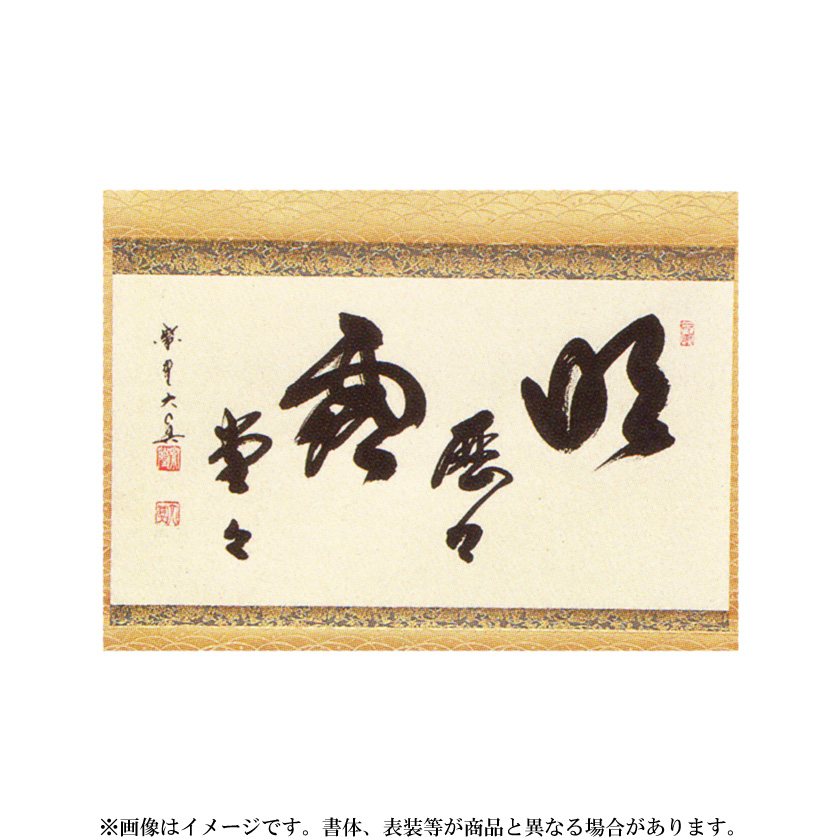 明
歴々
露
堂々
※画像はイメージです。書体、表装等が商品と異なる場合があります。